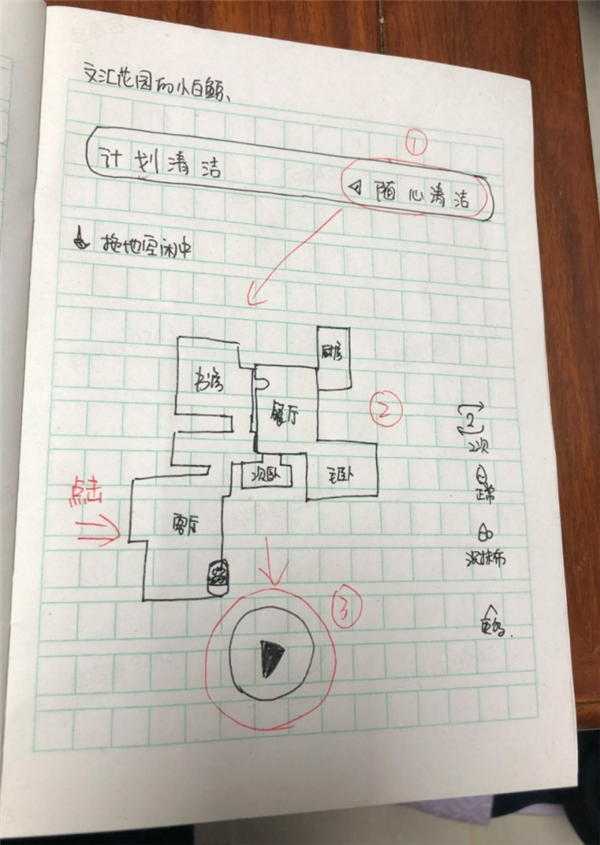 文汇花园的小白鲸、
①
计划清洁
随心清洁
拖地空闲中
厨房
书房
餐厅
②
2
2次
次卧
主卧
正常
点击
客厅
洗抹布
③
更多